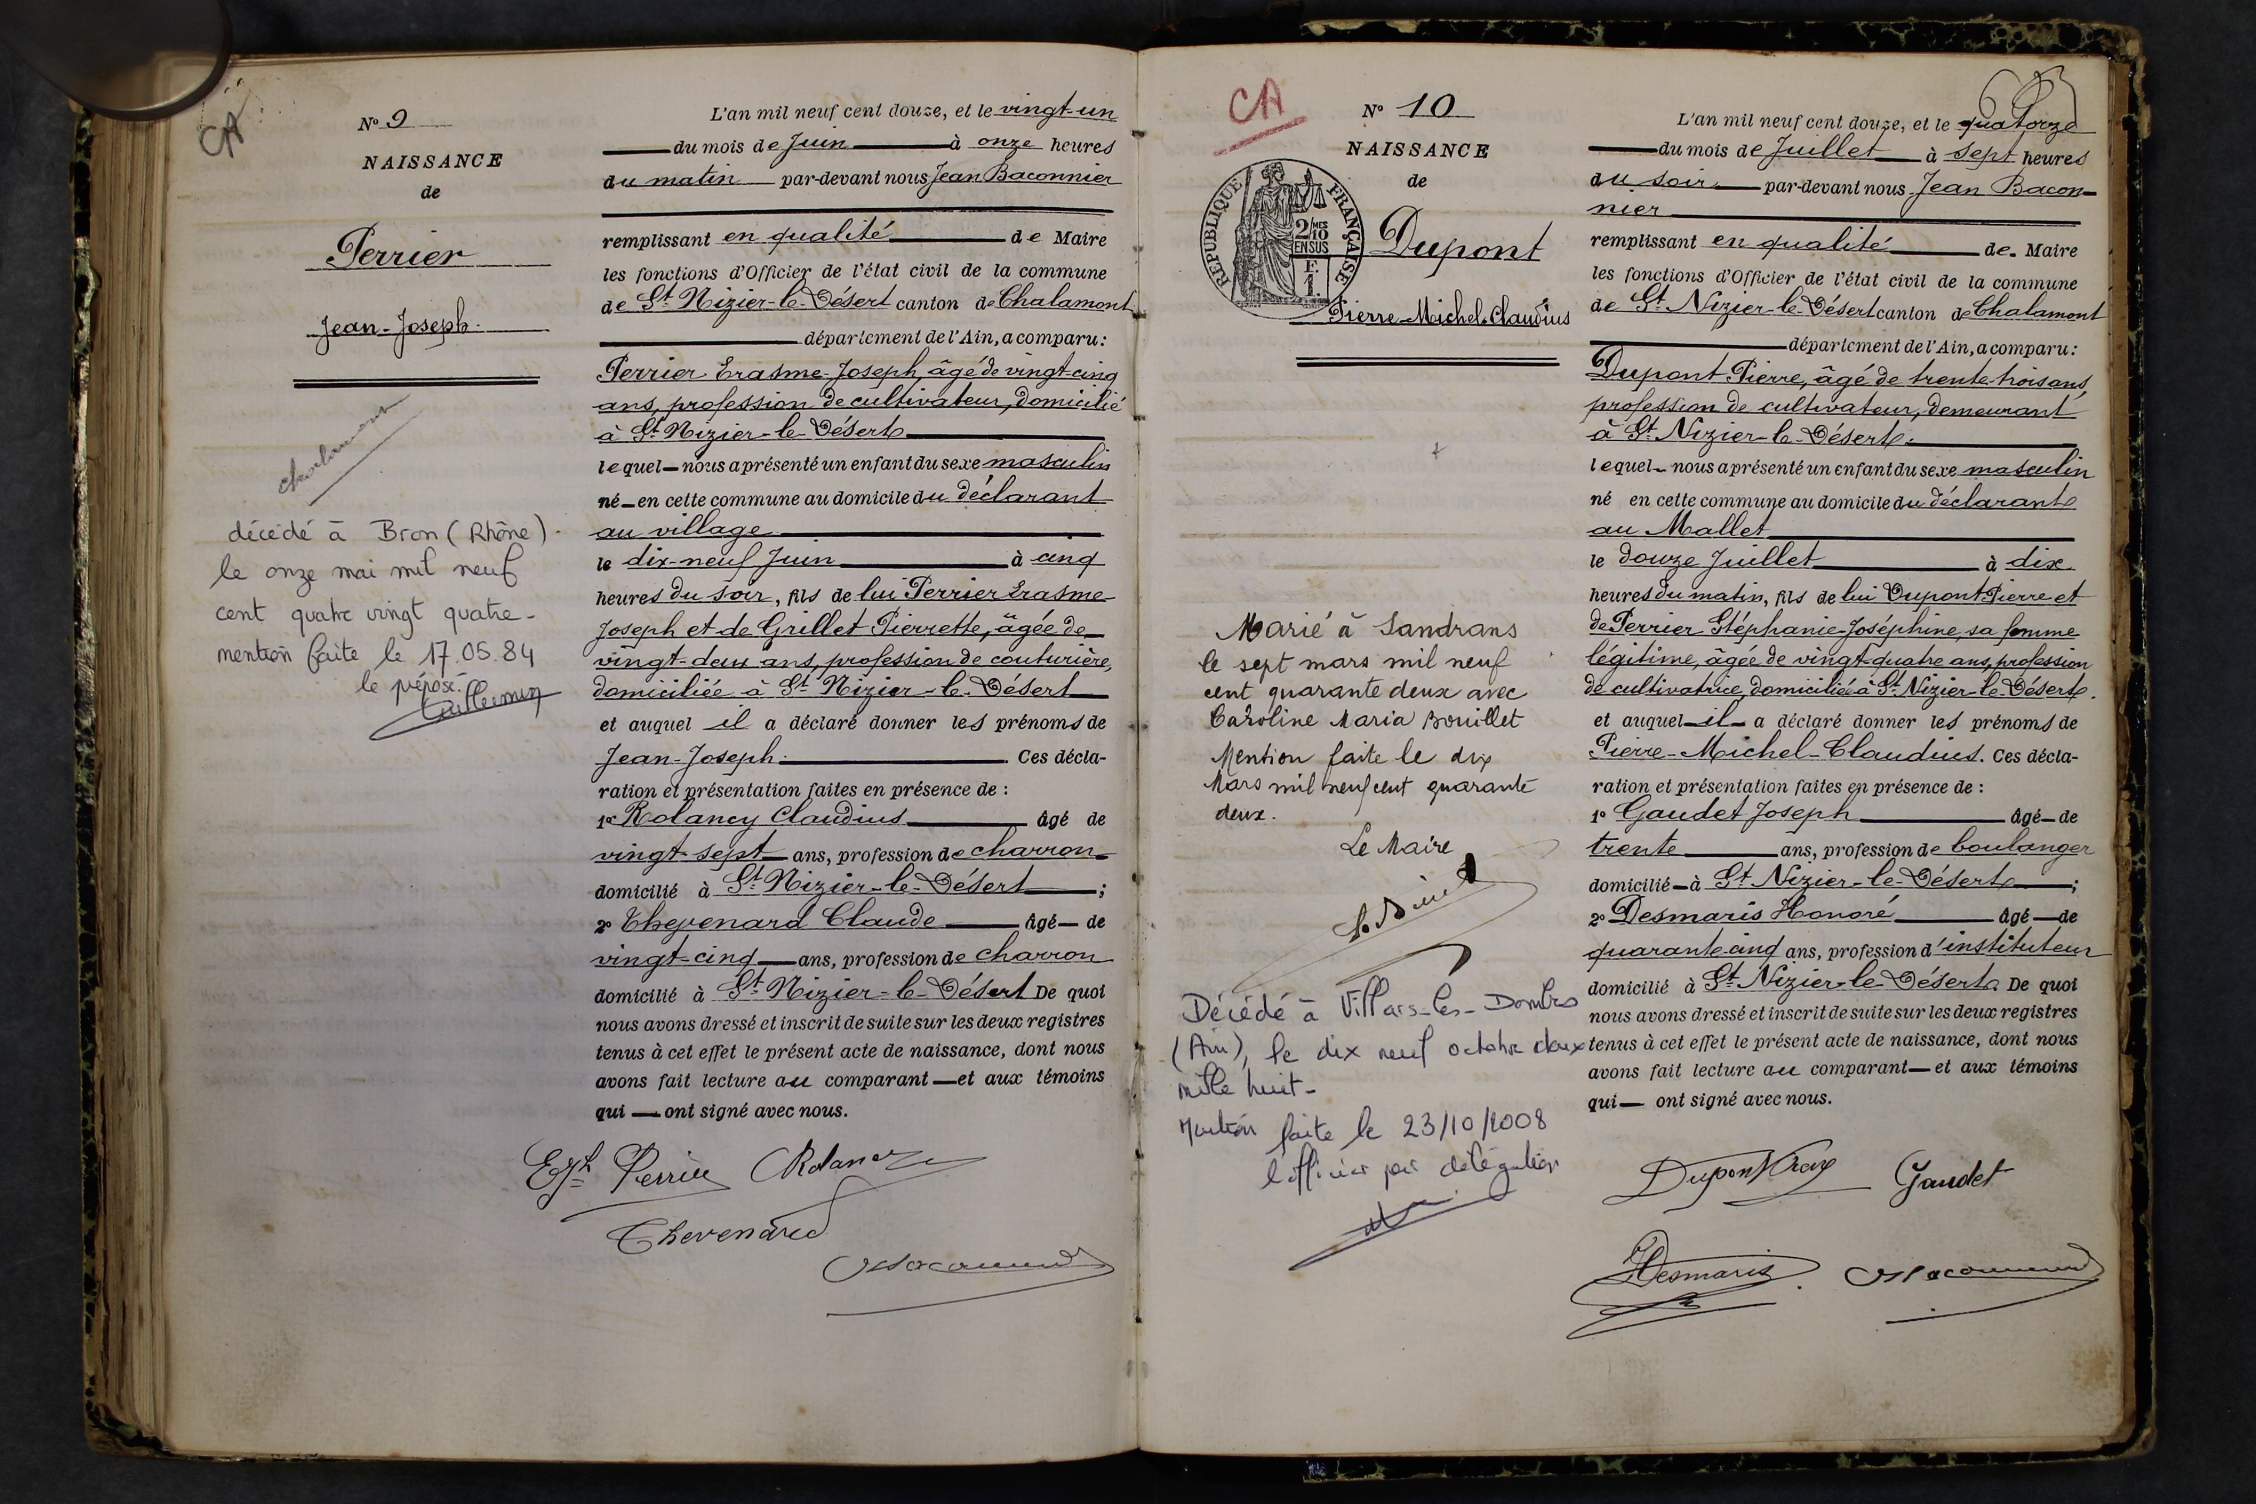 CA
N° 9
NAISSANCE
de
Perrier
Jean-Joseph.
décédé à Bron (Rhône).
le onze mai mil neuf
cent quatre vingt quatre-
mention faite le 17.05.84
le préposé.
L'an mil neuf cent douze, et le vingt-un
du mois de Juin à onze heures
du matin par-devant nous Jean Baconnier
remplissant en qualité de Maire
les fonctions d'Officier de l'état civil de la commune
de St Nizier-le-Désert canton de Chalamont
département de l'Ain, a comparu:
Perrier Erasme-Joseph, âgé de vingt-cinq
ans, profession de cultivateur, domicilié
à St Nizier-le-Désert
lequel nous a présenté un enfant du sexe masculin
né en cette commune au domicile du déclarant
au village
le dix-neuf Juin à cinq
heures du soir, fils de lui Perrier Erasme-
Joseph et de Grillet Pierrette, âgée de
vingt-deux ans, profession de couturière,
domiciliée à St Nizier-le-Désert
et auquel il a déclaré donner les prénoms de
Jean-Joseph. Ces décla-
ration et présentation faites en présence de :
1° Rolancy Claudius âgé de
vingt-sept ans, profession de charron
domicilié à St Nizier-le-Désert ;
2° Thevenard Claude âgé de
vingt-cinq ans, profession de charron
domicilié à St Nizier-le-Désert De quoi
nous avons dressé et inscrit de suite sur les deux registres
tenus à cet effet le présent acte de naissance, dont nous
avons fait lecture au comparant et aux témoins
qui ont signé avec nous.
Perrier Rolancy
Thevenard
CA
N° 10
NAISSANCE
de
RÉPUBLIQUE FRANÇAISE
2/10 MES
EN SUS
Dupont
Pierre-Michel-Claudius
Marié à Sandrans
le sept mars mil neuf
cent quarante deux avec
Caroline Maria Bouillet
Mention faite le dix
Mars mil neuf cent quarante
deux.
Le Maire
Décédé à Villars-les-Dombes
(Ain), le dix neuf octobre deux
mille huit-
Mention faite le 23/10/2008
l'officier par délégation
L'an mil neuf cent douze, et le quatorze
du mois de Juillet à sept heures
du soir par-devant nous Jean Bacon-
nier
remplissant en qualité de Maire
les fonctions d'Officier de l'état civil de la commune
de St Nizier-le-Désert canton de Chalamont
département de l'Ain, a comparu:
Dupont Pierre, âgé de trente-trois ans,
profession de cultivateur, demeurant
à St Nizier-le-Désert.
lequel nous a présenté un enfant du sexe masculin
né en cette commune au domicile du déclarant
au Mallet
le douze Juillet à dix
heures du matin, fils de lui Dupont Pierre et
de Perrier Stéphanie-Joséphine, sa femme
légitime, âgée de vingt-quatre ans, profession
de cultivatrice, domiciliée à St Nizier-le-Désert.
et auquel il a déclaré donner les prénoms de
Pierre-Michel-Claudius. Ces décla-
ration et présentation faites en présence de :
1° Gaudet Joseph âgé de
trente ans, profession de boulanger
domicilié à St Nizier-le-Désert ;
2° Desmaris Honoré âgé de
quarante-cinq ans, profession d'instituteur
domicilié à St Nizier-le-Désert. De quoi
nous avons dressé et inscrit de suite sur les deux registres
tenus à cet effet le présent acte de naissance, dont nous
avons fait lecture au comparant et aux témoins
qui ont signé avec nous.
Dupont Gaudet
Desmaris